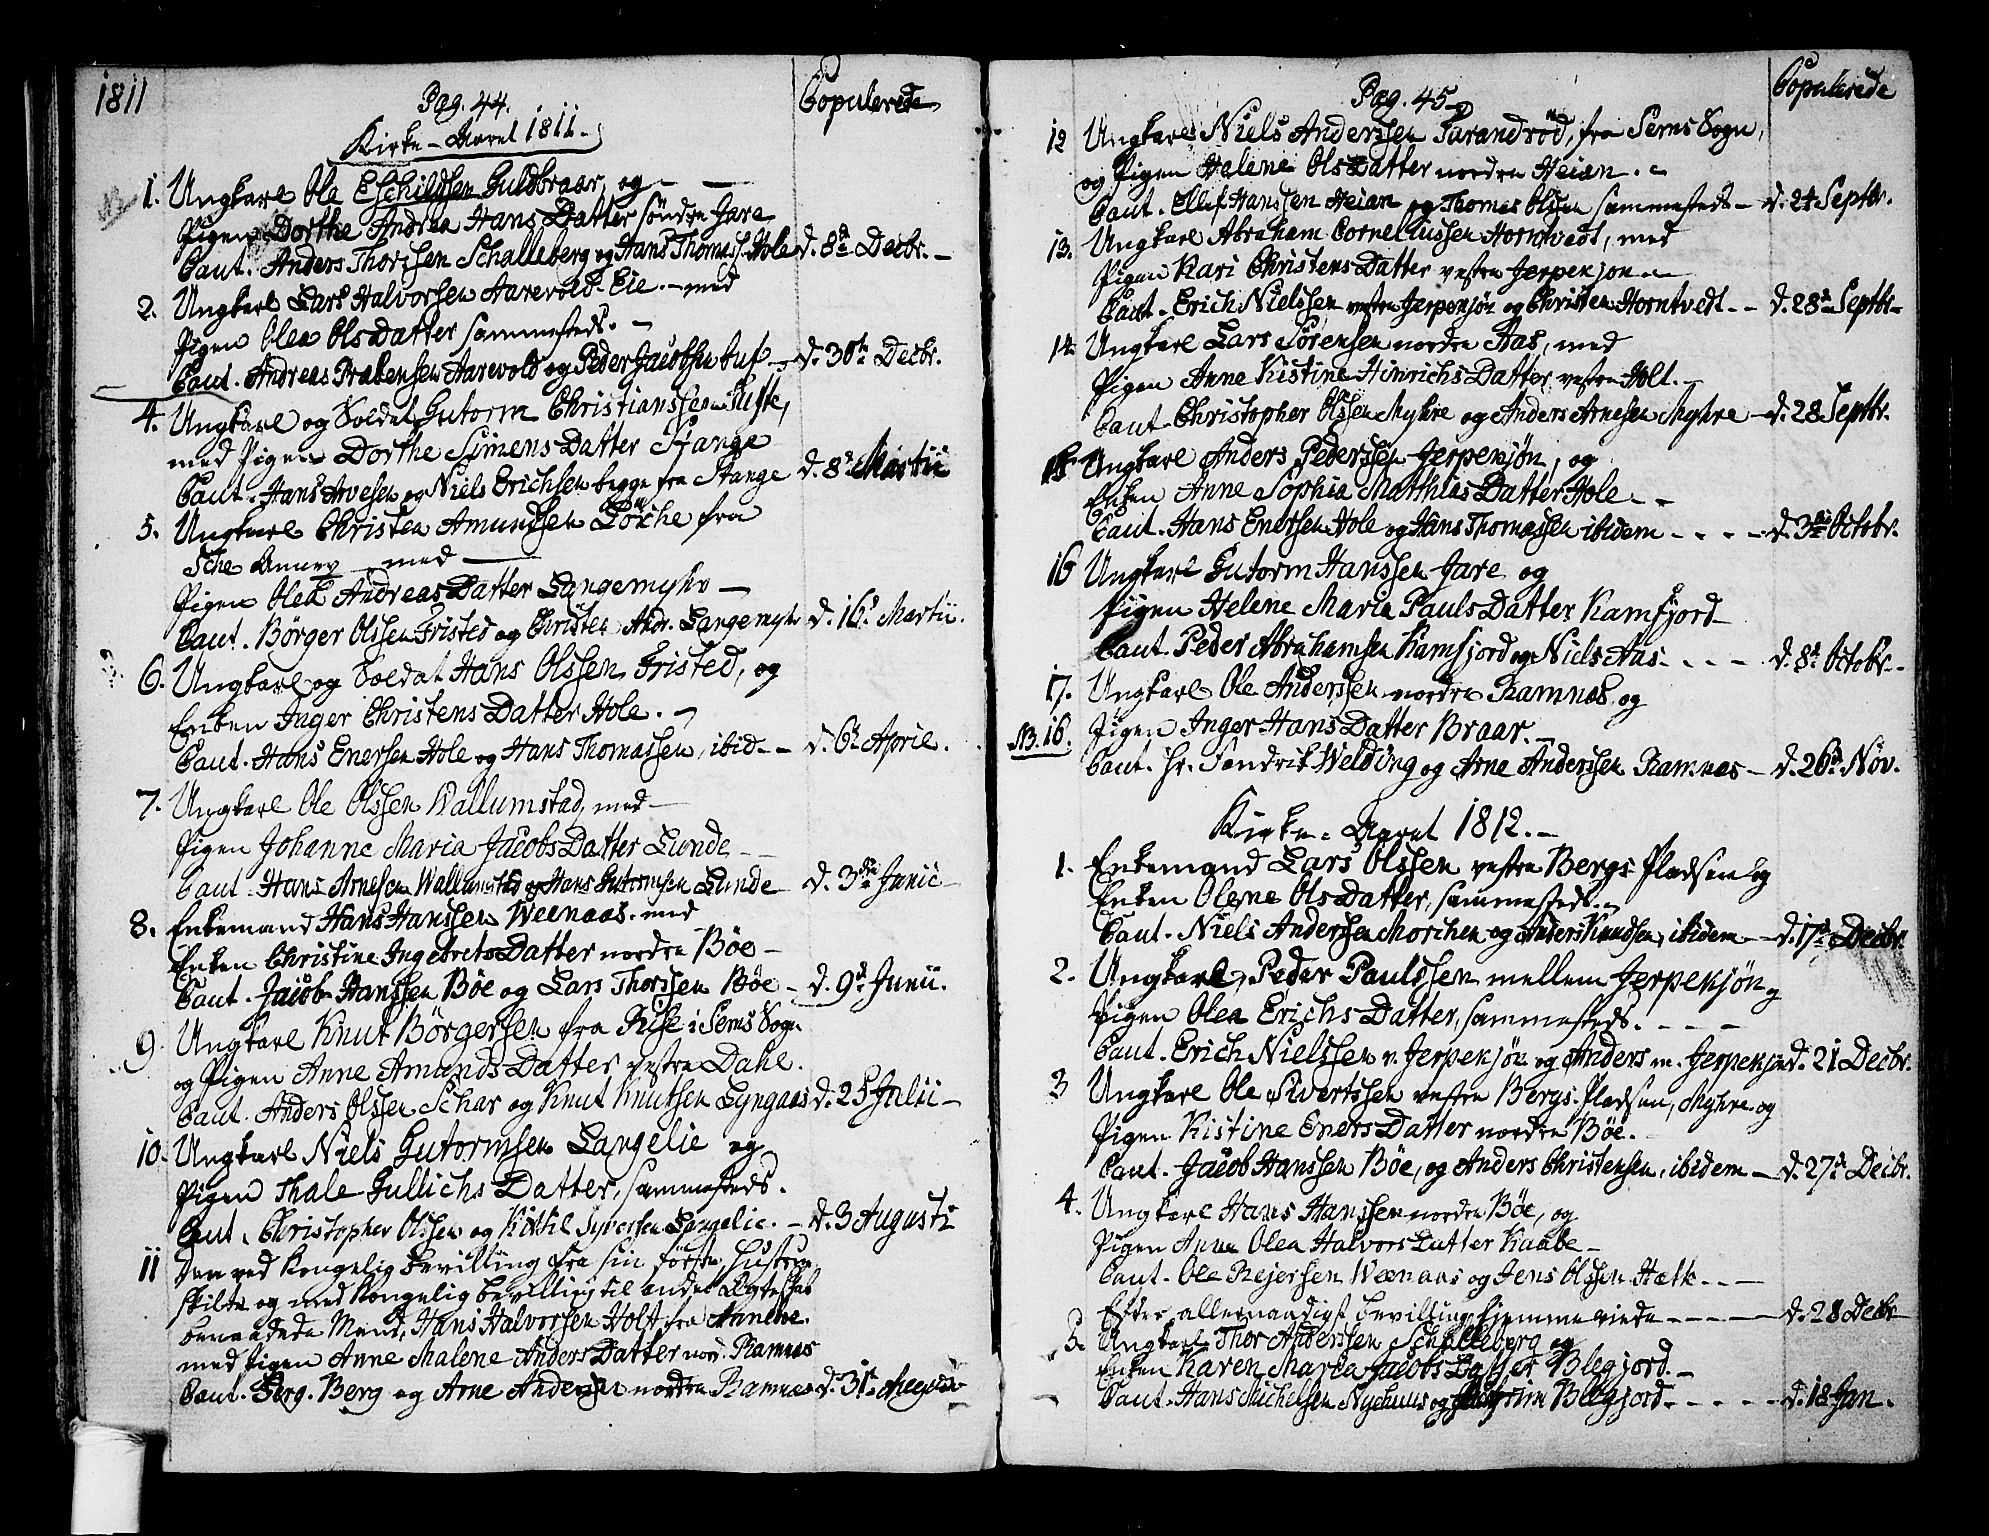 1811
Pag. 44.
Copulerede
Kirke-Aaret 1811.
1. Ungkarl Ole Eschildsen Guldbraar, og
Pigen Dorthe Andrea Hans Datter søndre Jare
Caut. Anders Thorssen Schalleberg og Hans Thomass. Hole d. 8de Decbr.
2. Ungkarl Lars Halvorsen Aarevold-Eie. med
Pigen Olea Olsdatter sammesteds.
Caut. Andreas Prebensen Aarevold og Peder Jacobsen d. 30te Decbr.
4. Ungkarl og Soldat Gutorm Christianssen Tufte,
med Pigen Dorthe Simens Datter Stange
Caut. Hans Arvesen og Niels Erichsen begge fra Stange d. 8de Martii
5. Ungkarl Christen Amundsen fra
Sche Annex med
Pigen Olea Andreas Datter Langemyhr
Caut. Børger Olssen Fristed og Christen Andr. Langemyhr d. 16de Martii.
6. Ungkarl og Soldat Hans Olssen Fristed, og
Enken Inger Christens Datter Hole.
Caut. Hans Enersen Hole og Hans Thomassen, ibid. d. 6te April.
7. Ungkarl Ole Olssen Wallumstad, med
Pigen Johanne Maria Jacobs Datter Lunde
Caut. Hans Arnesen Wallumstad og Hans Gutormsen Lunde d. 3die Junii
8. Enkemand Hans Hanssen Weenaas. med
Enken Christine Ingebrets Datter nordre Bøe
Caut. Jacob Hanssen Bøe og Lars Thorssen Bøe d. 9de Junii.
9. Ungkarl Knut Børgersen fra Rise i Sems Sogn
og Pigen Anne Amunds Datter vestre Dahl.
Caut. Anders Olssen Schar og Knut Knutsen Lyngaas d. 25 Julii
10. Ungkarl Niels Gutormsen Langelie og
Pigen Thale Gullichs Datter, sammesteds.
Caut. Christopher Olssen og Kittil Syversen Langelie. d. 3 Augusti
11 Den ved Kongelig Bevilling fra sin første Hustrue
skilte og med Kongelig bevilling til andet Ægteskab
benaadede Mand, Hans Halvorsen Holt fra
med Pigen Anne Malene Anders Datter nor. Ramnæs
Caut. Berg og Arne Andersen nordre Ramnæs d. 31te Augusti
Pag. 45
Copulerede
12 Ungkarl Niels Anderssen Farandrød, fra Sems Sogn,
og Pigen Halene Ols Datter nordre Heian.
Caut. Ellef Hanssen Heian og Thomas Olssen sammesteds d. 24 Septbr.
13. Ungkarl Abraham Corneliussen Horntvedt, med
Pigen Kari Christens Datter vestre Jerpekjøn
Caut. Erich Nielssen vestre Jerpekjøn og Christen Horntvedt d. 28de Septbr.
14. Ungkarl Lars Sørensen nordre Aas, med
Pigen Anne Kistine Hinrichs Datter vestre Holt.
Caut. Christopher Olssen Myhre og Anders Arnesen Myhre d. 28 Septbr.
15 Ungkarl Anders Pederssen Jerpekjøn, og
Enken Anne Sophia Matthias Datter Hole
Caut. Hans Enersen Hole og Hans Thomassen ibidem d. 3die Octobr.
16 Ungkarl Gutorm Hanssen Jare og
Pigen Helene Maria Pauls Datter Kamfjord
Caut. Peder Abrahamsen Kamfjord og Niels Aas d. 8de Octobr.
17. Ungkarl Ole Anderssen nordre Ramnæs, og
NB. 16. Pigen Inger Hans Datter Braar.
Caut. Hr. Fendrik Welding og Arne Anderssen Ramnæs d. 26de Nov.
Kirke-Aaret 1812.
1. Enkemand Lars Olssen vestre Bergs Pladsen og
Enken Olene Ols Datter, sammesteds.
Caut. Niels Anderssen Morchen og Anders Knudsen, ibidem d. 17de Decbr.
2. Ungkarl, Peder Paulssen mellem Jerpekjøn og
Pigen Olea Erichs Datter, sammesteds.
Caut. Erich Nielssen v. Jerpekjøn og Anders m. Jerpekjøn d. 21 Decbr.
3 Ungkarl Ole Sivertssen vestre Bergs-Pladsen, Myhre og
Pigen Kistine Eners Datter nordre Bøe.
Caut. Jacob Hanssen Bøe, og Anders Christensen, ibidem d. 27de Decbr.
4. Ungkarl Hans Hanssen nordre Bøe, og
Pigen Anne Olea Halvors Datter Kaabe
Caut. Ole Rejersen Weenaas og Jens Olssen Hælt
Efter allernaadigst bevilling hjemmeviede d. 28 Decbr
5. Ungkarl Thor Anderssen Schalleberg og
Enken Karen Maria Jacobs Datter Blegjord.
Caut. Hans Michelsen Nyehuus og Blegjord d. 18 Jan.